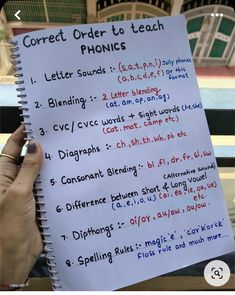 Correct Order to teach
PHONICS
1. Letter Sounds :- (s,a,t,p,n,i) Jolly phonics
(a,b,c,d,e,f) Or this format
2. Blending :- 2 letter blending
(at, am, ap, an, ag)
3. CVC/CVCC words + Sight words (he, she)
(cat, mat, camp etc)
4. Diagraphs :- ch, sh, th, wh, ph etc
5. Consonant Blending :- bl, fl, dr, fr, sl, sw
(Alternative Sound)
6. Difference between Short & Long Vowel
(a,e,i,o,u) (ai, ea, ie, oa, ue) etc
7. Dipthongs :- oi/oy, au/aw, ou/ow.
8. Spelling Rules :- magic 'e', 'c' or 'k' or 'ck'
Floss rule and much more....